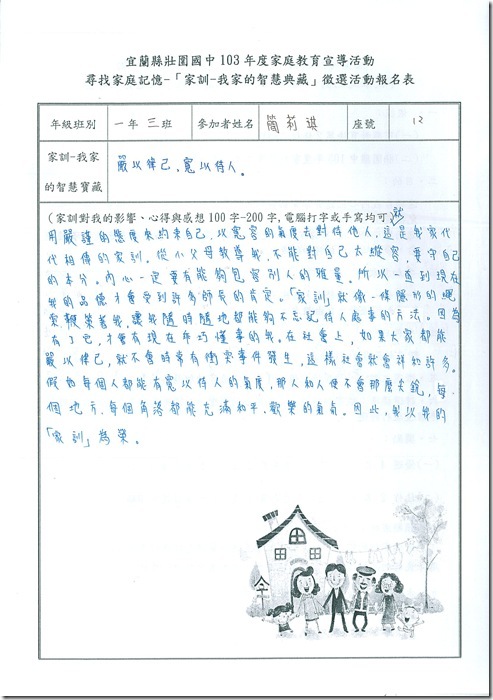 宜蘭縣壯圍國中 103 年度家庭教育宣導活動
尋找家庭記憶-「家訓-我家的智慧典藏」徵選活動報名表
年級班別 一年三班 參加者姓名 簡莉琪 座號 12
家訓-我家的智慧寶藏 嚴以律己,寬以待人。
(家訓對我的影響、心得與感想 100 字-200 字,電腦打字或手寫均可)就
用嚴謹的態度來約束自己,以寬容的氣度去對待他人,這是我家代
代相傳的家訓。從小父母教導我,不能對自己太縱容,要守自己
的本分。內心一定要有能夠包容別人的雅量。所以一直到現在
我的品德才會受到許多師長的肯定。「家訓」就像一條隱形的繩
索鞭策著我,讓我隨時隨地都能夠不忘記待人處事的方法。因為
有了它,才會有現在乖巧懂事的我。在社會上,如果大家都能
嚴以律己,就不會時常有衝突事件發生,這樣社會就會祥和許多。
假如每個人都能有寬以待人的氣度,那人和人便不會那麼尖銳,每
個地方、每個角落都能充滿和平、歡樂的氣息。因此,我以我的
「家訓」為榮。